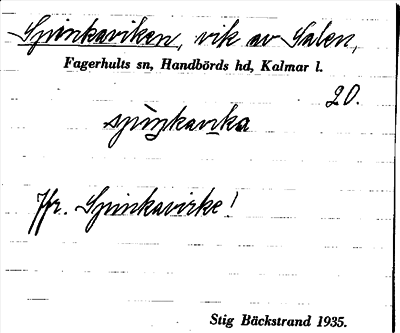 Spinkaviken, vik av Salen,
Fagerhults sn, Handbörds hd, Kalmar l.
20.
spiŋkavika
Jfr. Spinkavirke!
Stig Bäckstrand 1935.